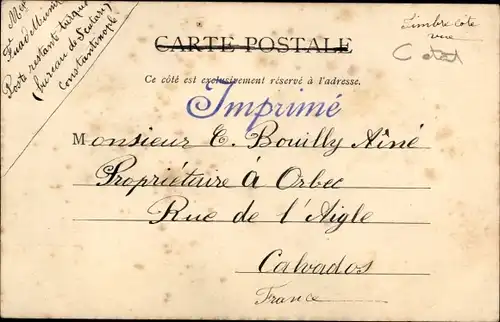 Poste restant turque
(bureau de Scutari)
Constantinople
Timbre côté
vue
CARTE POSTALE
Ce côté est exclusivement réservé à l'adresse.
Imprimé
Monsieur E. Bouilly Aîné
Propriétaire à Orbec
Rue de l'Aigle
Calvados
France